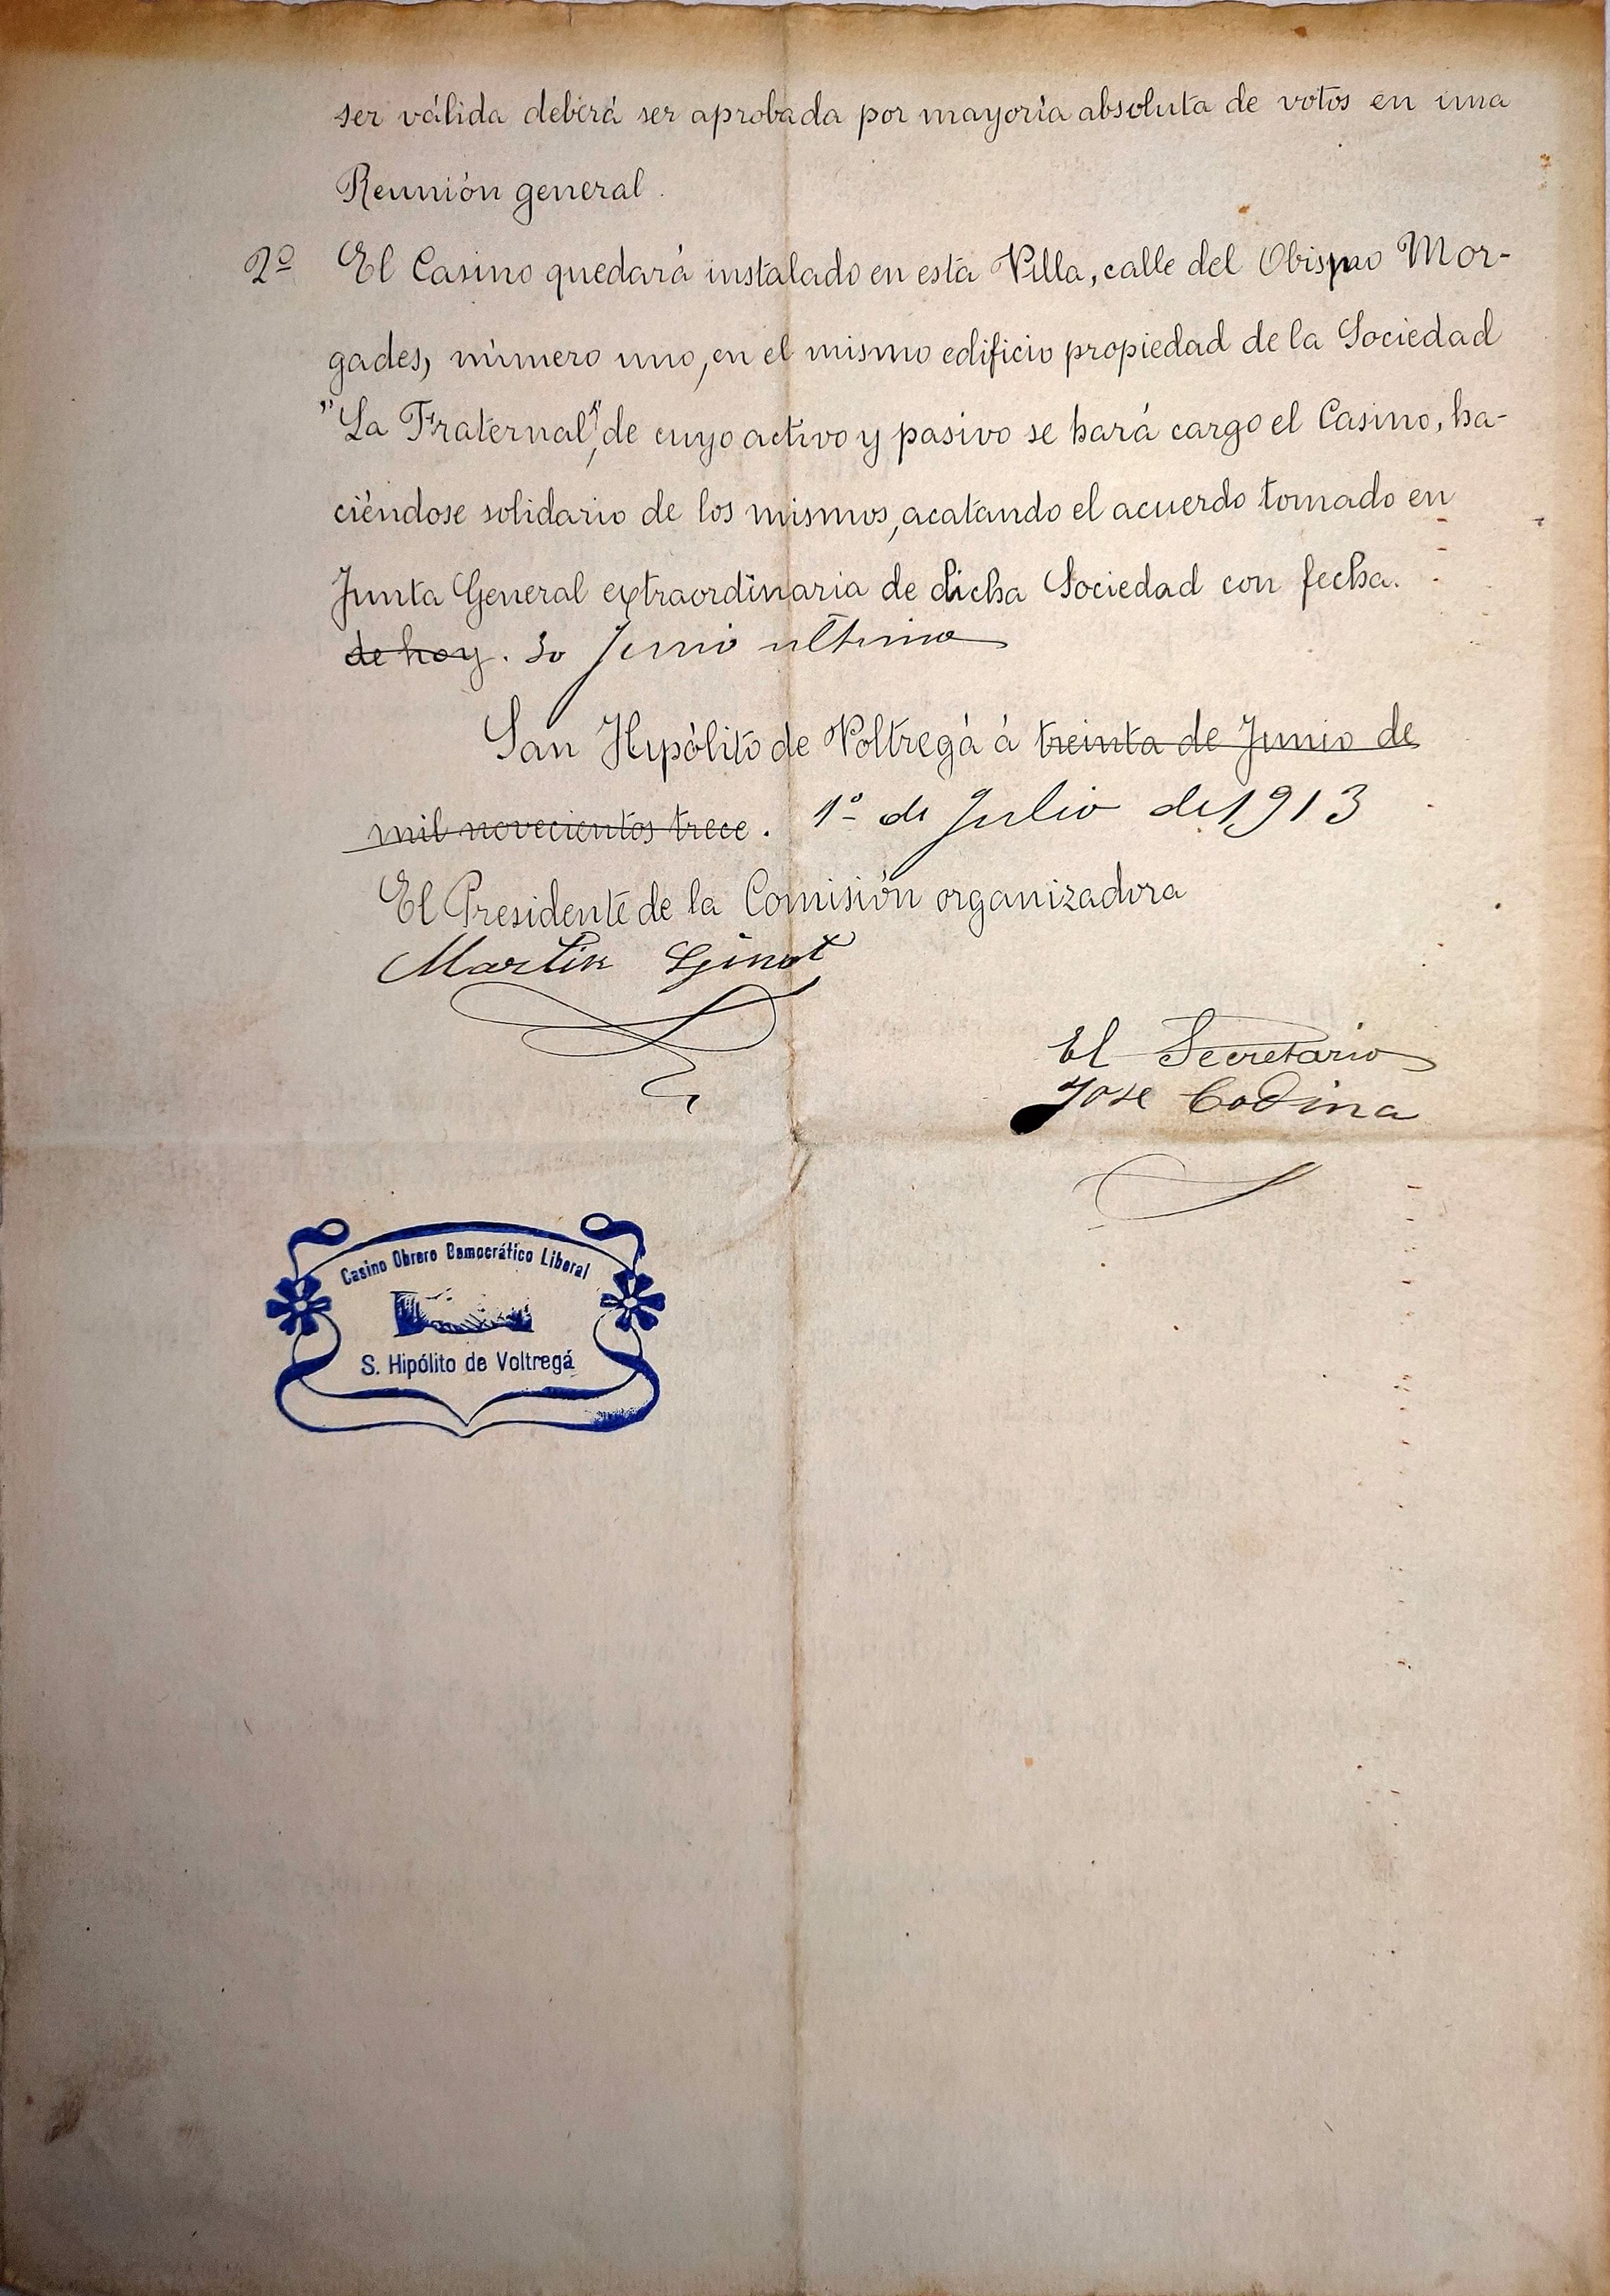 ser válida deberá ser aprobada por mayoría absoluta de votos en una
Reunión general.
2º El Casino quedará instalado en esta Villa, calle del Obispo Mor-
gades, número uno, en el mismo edificio propiedad de la Sociedad
"La Fraternal", de cuyo activo y pasivo se hará cargo el Casino, ha-
ciéndose solidario de los mismos, acatando el acuerdo tomado en
Junta General extraordinaria de dicha Sociedad con fecha.
de hoy. 30 Junio ultimo
San Hipólito de Voltregá á treinta de Junio de
mil novecientos trece. 1º de Julio de 1913
El Presidente de la Comisión organizadora
Martin Ginot
El Secretario
Jose Codina
Casino Obrero Democrático Liberal
S. Hipólito de Voltregá